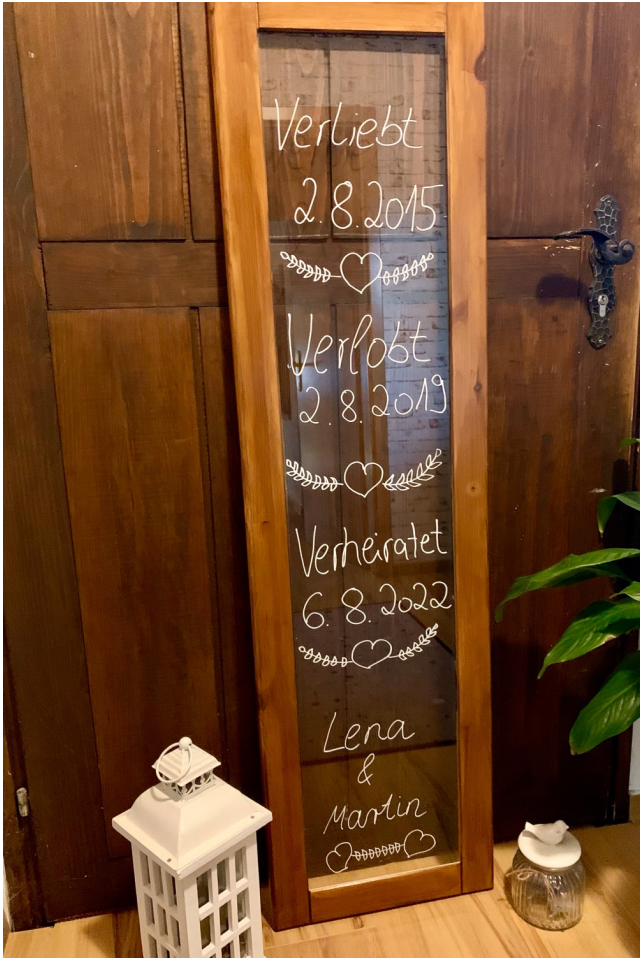 Verliebt
2.8.2015
Verlobt
2.8.2019
Verheiratet
6.8.2022
Lena
&
Martin